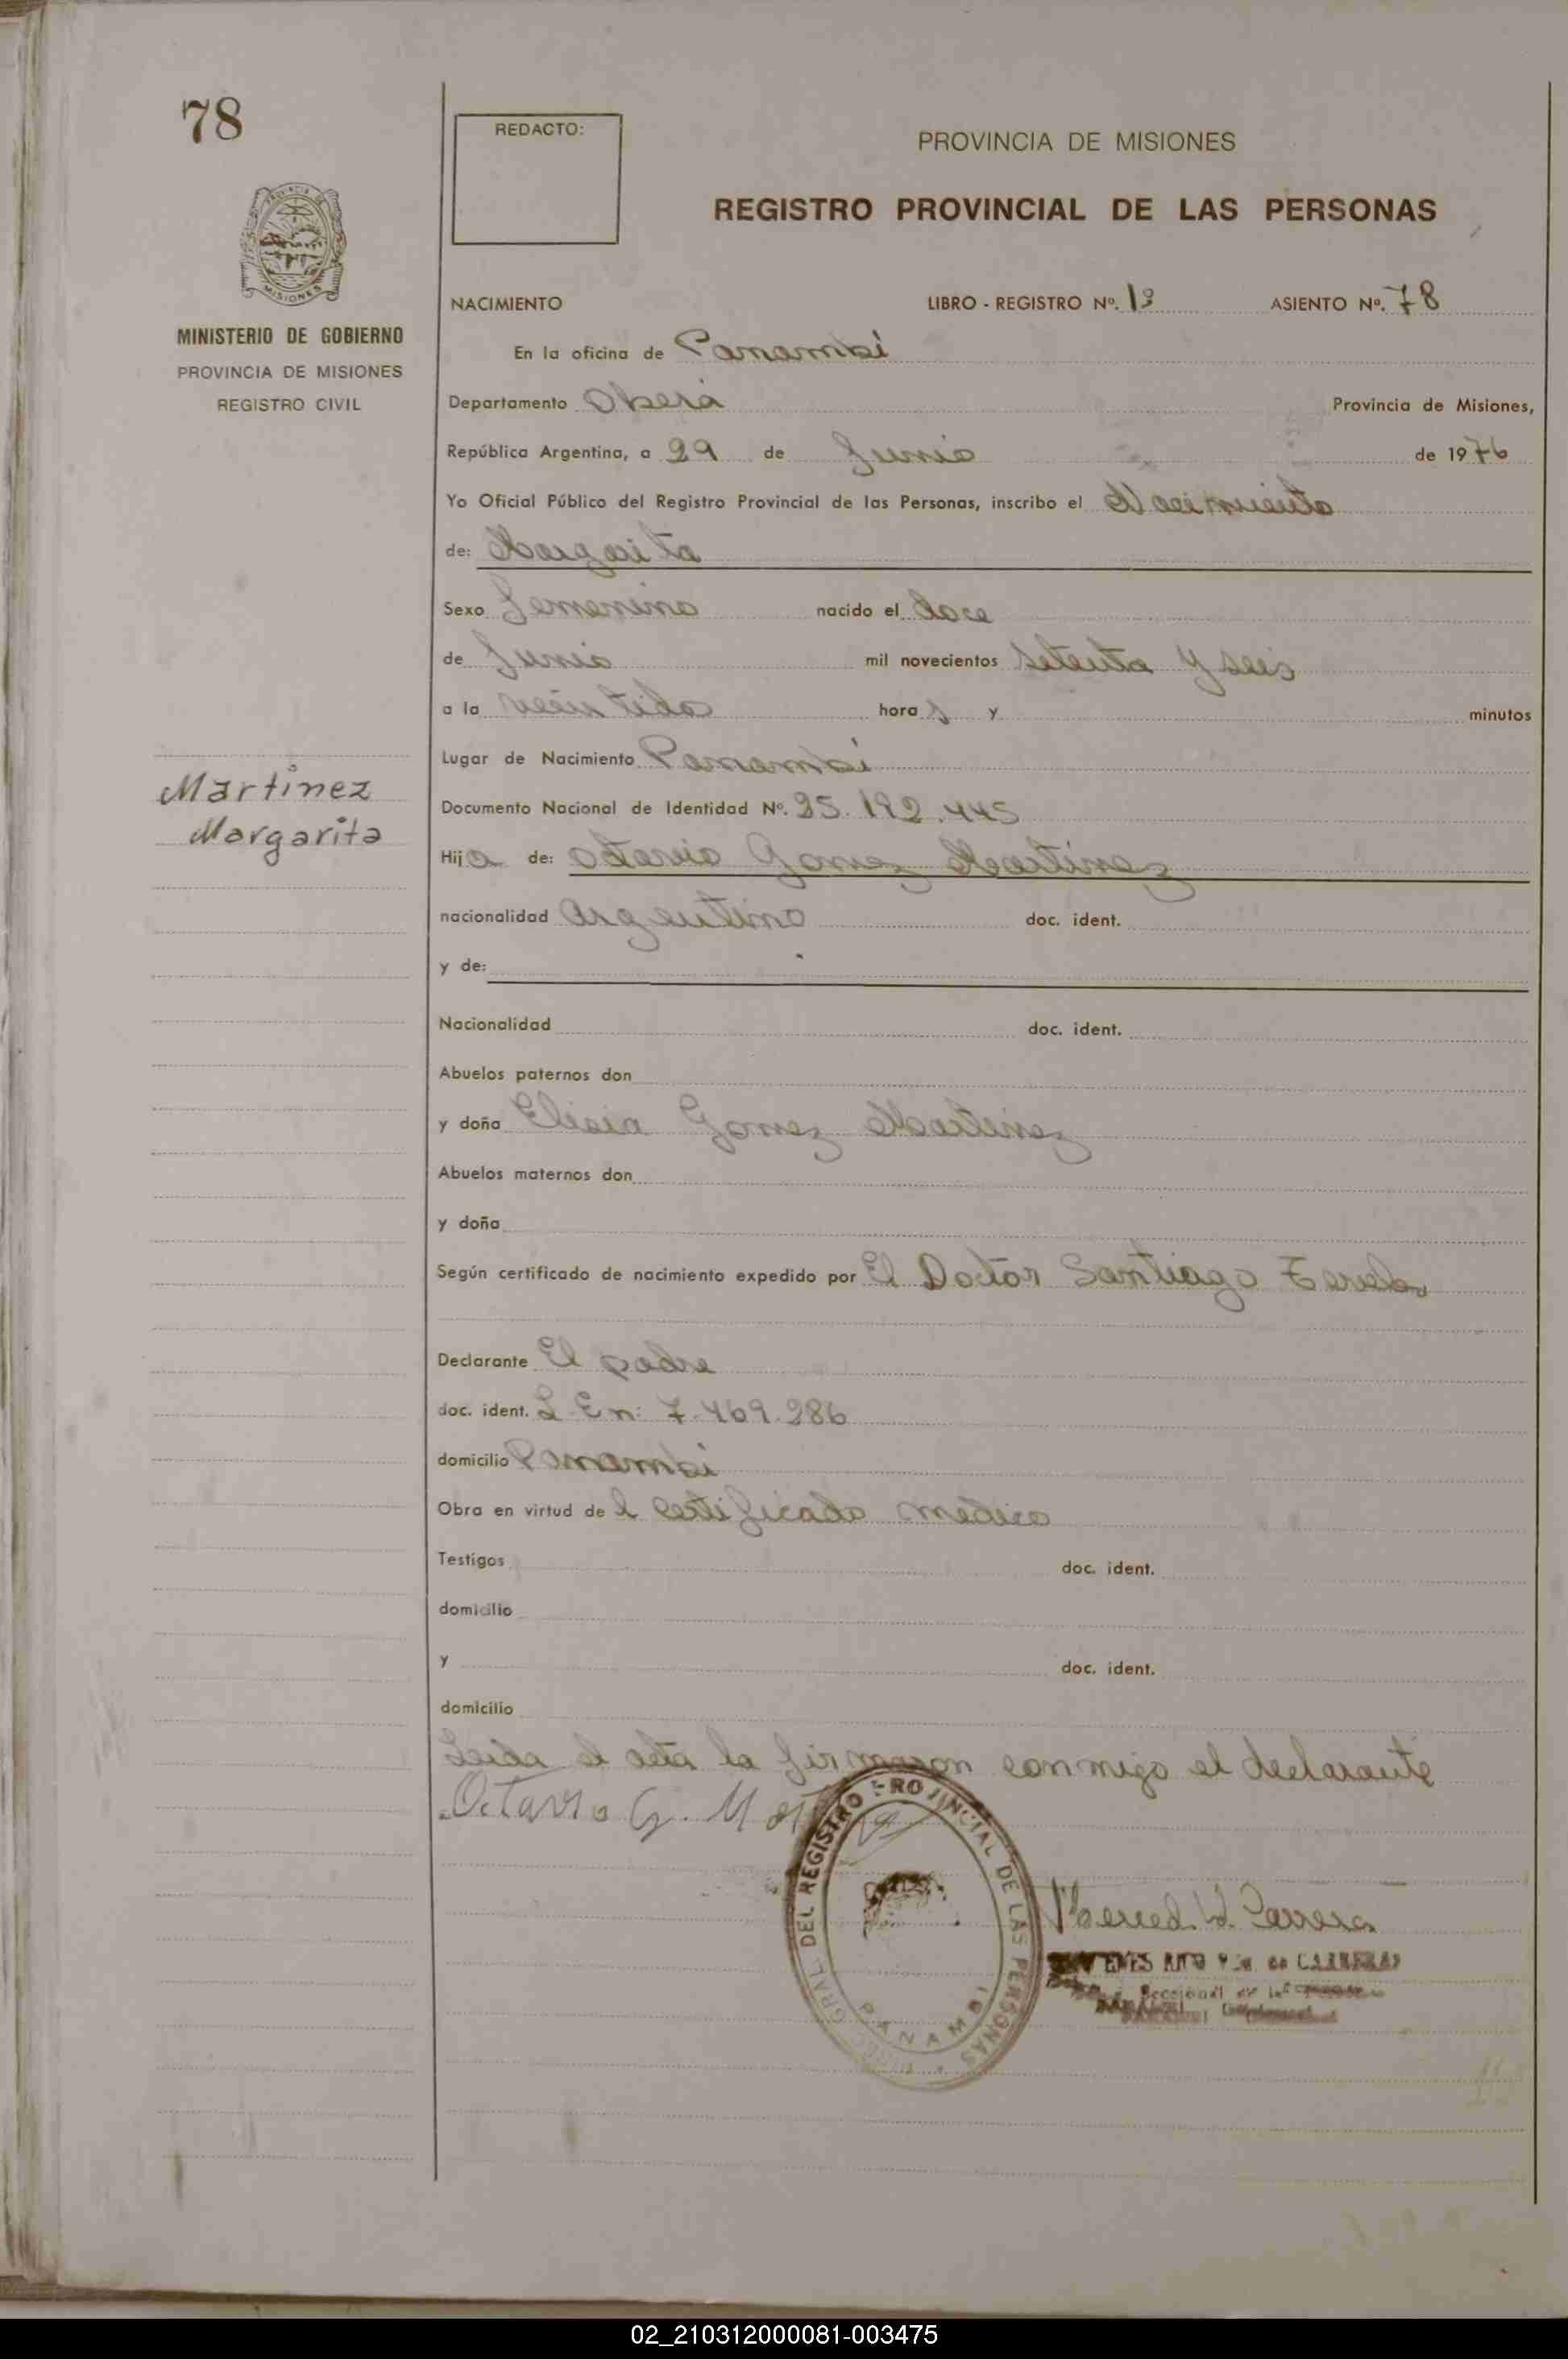 78
REDACTO:
PROVINCIA DE MISIONES
REGISTRO PROVINCIAL DE LAS PERSONAS
PROVINCIA DE
MISIONES
MINISTERIO DE GOBIERNO
PROVINCIA DE MISIONES
REGISTRO CIVIL
NACIMIENTO LIBRO - REGISTRO Nº. 1º ASIENTO Nº. 78
En la oficina de Panambí
Departamento Oberá Provincia de Misiones,
República Argentina, a 29 de Junio de 1976
Yo Oficial Público del Registro Provincial de las Personas, inscribo el Nacimiento
de: Margarita
Sexo Femenino nacido el doce
de Junio mil novecientos setenta y seis
a la veintidos hora s y minutos
Lugar de Nacimiento Panambí
Martínez
Margarita
Documento Nacional de Identidad Nº. 25.192.445
Hij a de: Octavio Gomez Martinez
nacionalidad Argentino doc. ident.
y de:
Nacionalidad doc. ident.
Abuelos paternos don
y doña Gomez Martinez
Abuelos maternos don
y doña
Según certificado de nacimiento expedido por El Doctor Santiago
Declarante El padre
doc. ident. L En: 7.469.286
domicilio Panambí
Obra en virtud de l certificado médico
Testigos doc. ident.
domicilio
y doc. ident.
domicilio
Leida el acta la firmaron conmigo el declarante
Octavio G. Mart
DEL REGISTRO PROVINCIAL DE LAS PERSONAS
GRAL
PANAMBI
02_210312000081-003475